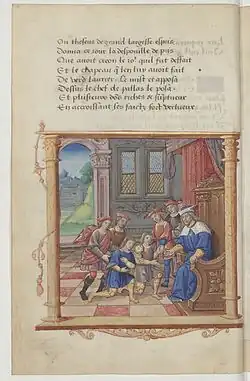 Ou theseus de grand largesse espris
Donna ce iour la despouille de pris
Que auoit creon le roy quil fut deffait
Et le chapeau q len luy auoit fait
De verd laurier Le mist et apposa
Dessus le chef de pallas le posa
Et plusieurs dons riches & suptueux
En accroissant ses faictz fort vertueux